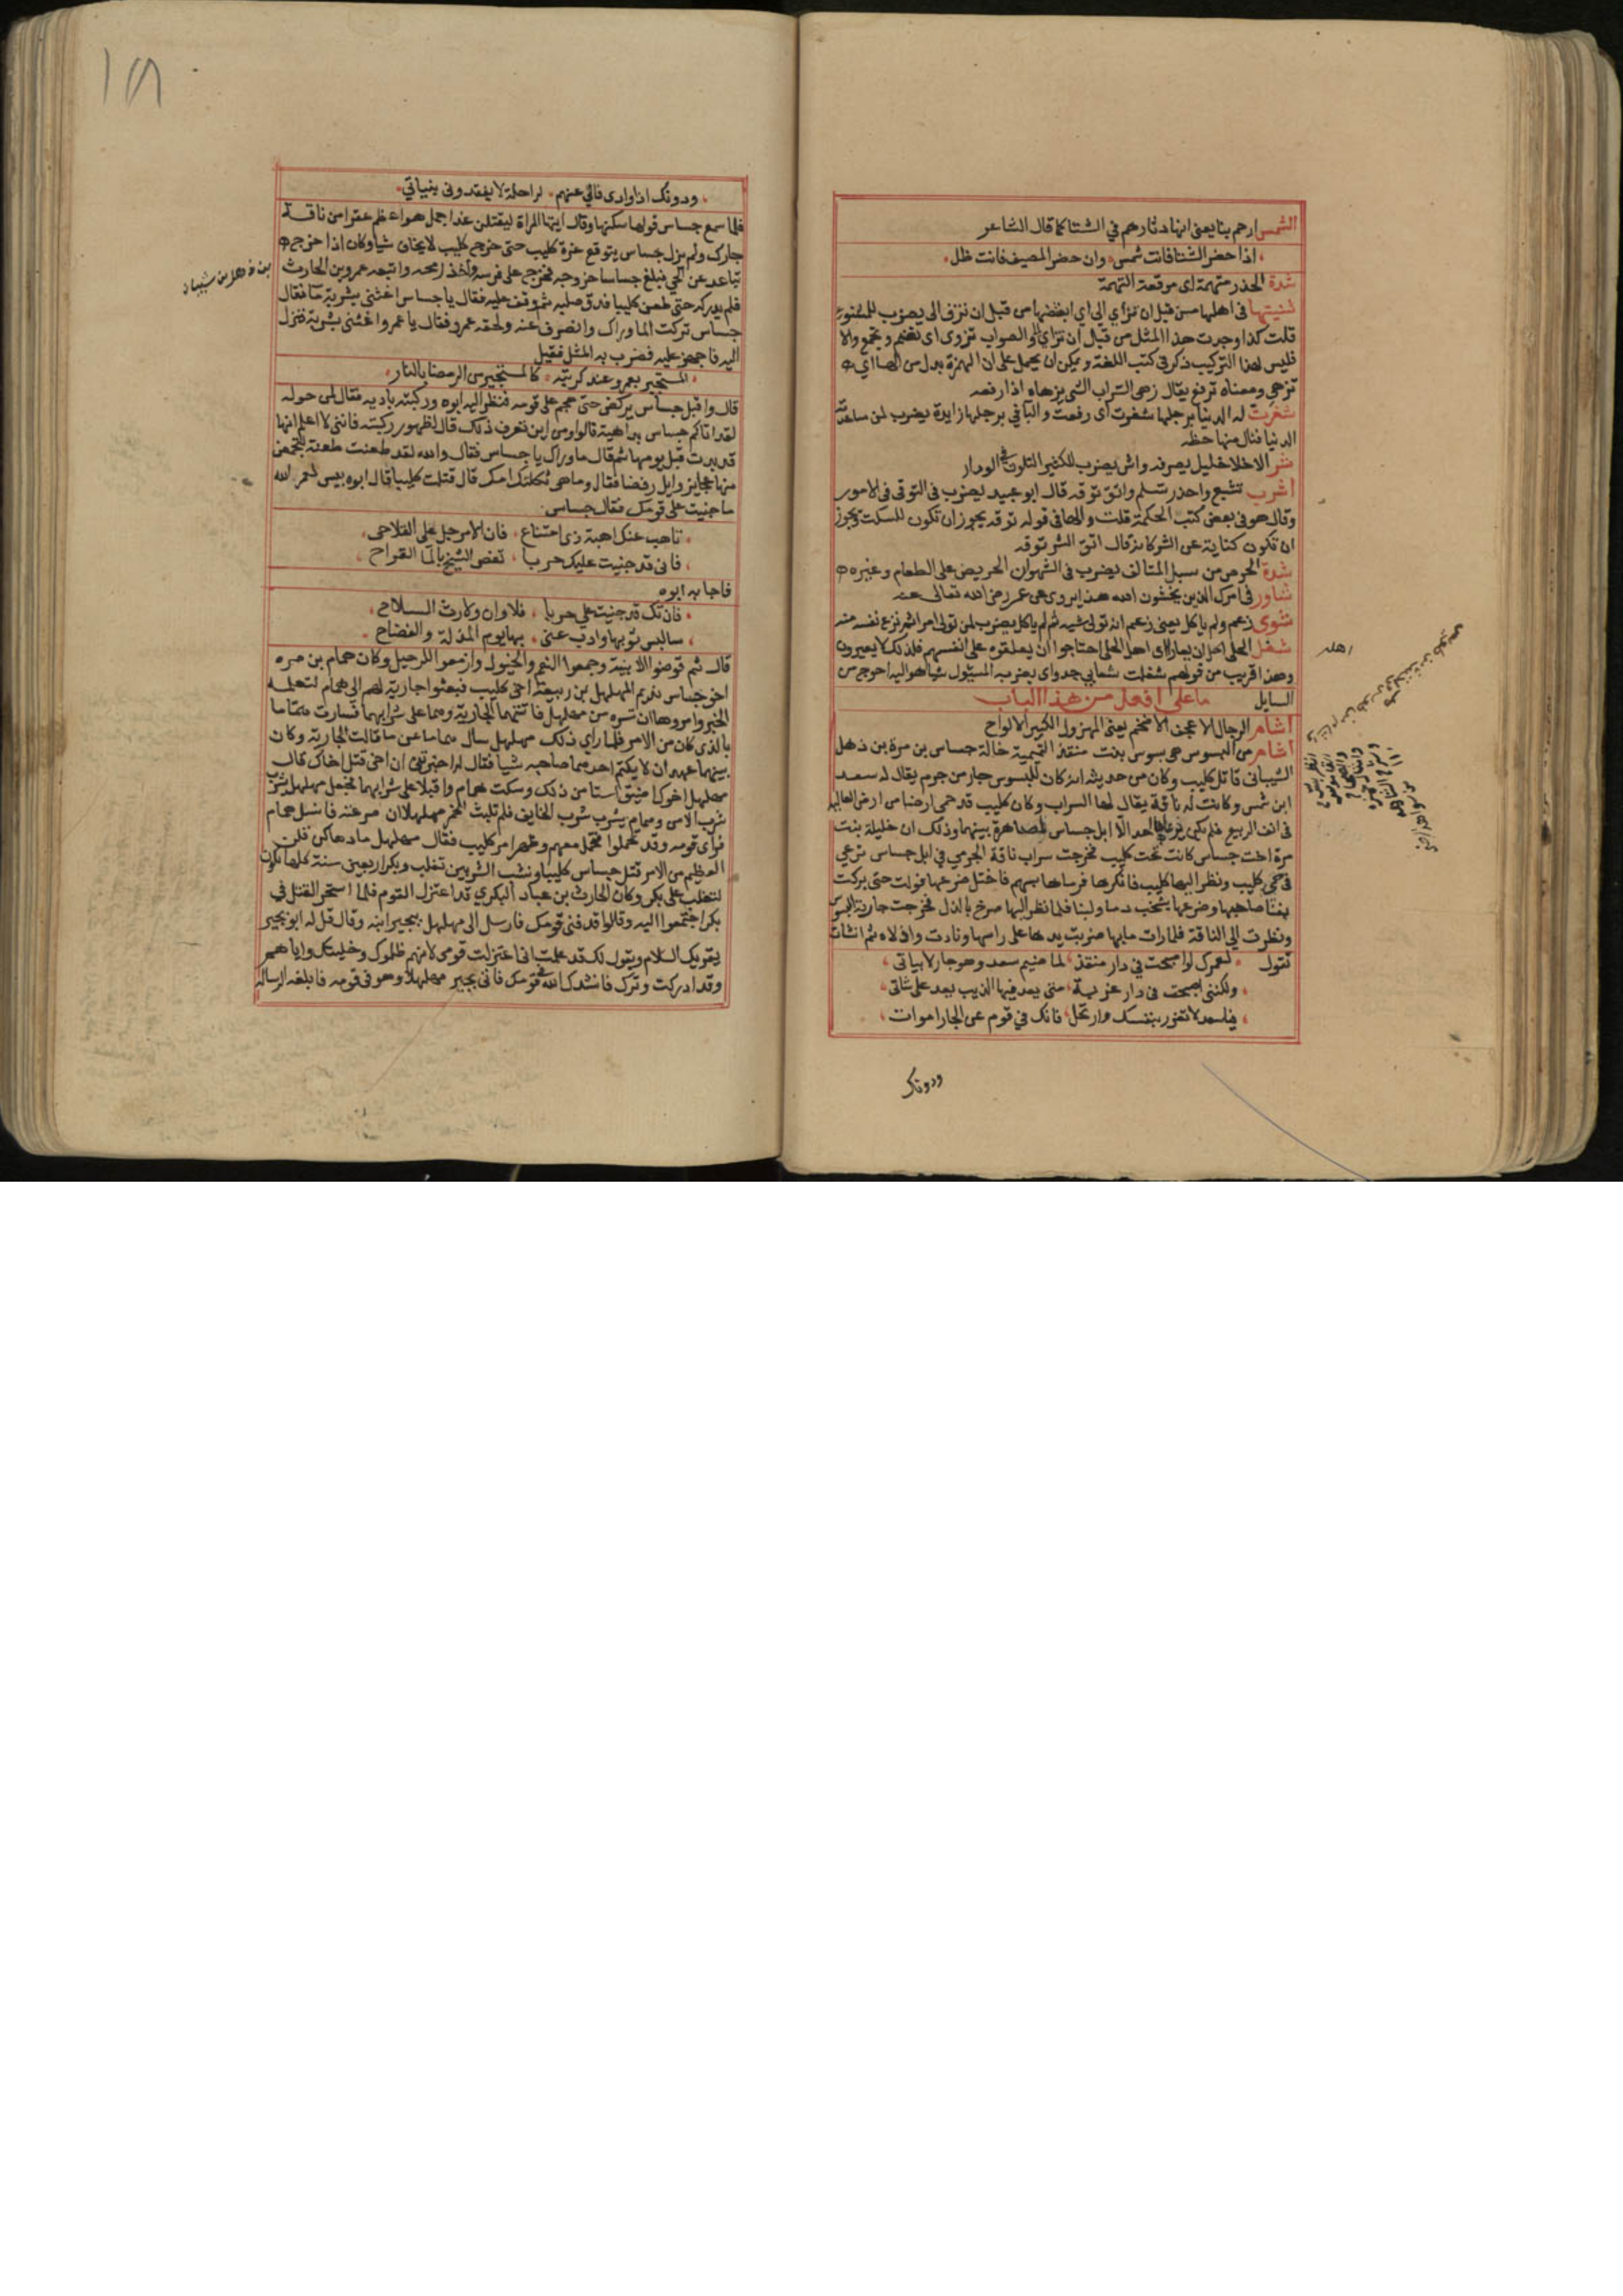 الشمس ارحم بنا يعنى انها دثارهم في الشتا كما قال الشاعر
اذا حضر الشتا فانت شمس وان حضر المصيف فانت ظل
شدة الحذر متهمة اى موقعة التهمة
شنيتها فى اهلها من قبل ان تزأى الى اى ابغضتها من قبل ان تزف الى يضرب للمشنوء
قلت كذا وجدت هذا المثل من قبل ان تزاي الى والصواب تزوى اى تضم وتجمع والا
فليس لهذا التركيب ذكر فى كتب اللغة ويمكن ان يحمل على ان الهمزة بدل من الها اي
تزهى ومعناه ترفع يقال زهى السراب الشى يزهاه اذا رفعه
شغرت له الدنيا برجلها شغرت اى رفعت والبا في برجلها زايدة يضرب لمن ساعدته
الدنيا فنال منها حظه
شر الاخلا خليل يصرفه واش يضرب للكثير التلون فى الوداد
اشرب تشبع واحذر تسلم واتق توقه قال ابو عبيد يضرب فى التوقى فى الامور
وقال هو فى بعض كتب الحكمة قلت والها فى قوله توقه يجوز ان تكون للسكت ويجوز
ان تكون كناية عن الشر كانه قال اتق الشر توقه
شدة الحرص من سبل المتالف يضرب فى الشهوان الحريص على الطعام وغيره
شاور فى امرك الذين يخشون الله هذا يروى عن عمر رضى الله تعالى عنه
شوى زعم ولم ياكل يعنى زعم انه تولى شيه ثم لم ياكل يضرب لمن تولى امرا ثم نزع نفسه منه
شغل الحلى اهله ان يعارا اى اهل الحلى احتاجوا ان يعلقوه على انفسهم فلذلك لا يعيرون
وهذا قريب من قولهم شغلت شعابي جدواى يضربه المسئول شيا هو اليه احوج من
السايل ما على افعل من هذا الباب
اشام الرجال الاعجف الاضخم يعنى المهزول الكبير الالواح
اشام من البسوس هى بسوس بنت منقذ التميمية خالة جساس بن مرة بن ذهل
الشيبانى قاتل كليب وكان من حديثه انه كان للبسوس جار من جرم يقال له سعد
ابن شمس وكانت له ناقة يقال لها السراب وكان كليب قد حمى ارضا من ارض العالية
فى انف الربيع فلم يكن يرعاها احد الا ابل جساس لمصاهرة بينهما وذلك ان خليلة بنت
مرة اخت جساس كانت تحت كليب فخرجت سراب ناقة الجرمي فى ابل جساس ترعي
فى حمى كليب ونظر اليها كليب فانكرها فرماها بسهم فاختل ضرعها فولت حتى بركت
بفنا صاحبها وضرعها يشخب دما ولبنا فلما نظر اليها صرخ بالذل فخرجت جارية البسوس
ونظرت الى الناقة فلما رات ما بها ضربت يدها على راسها ونادت واذلاه ثم انشات
تقول لعمرك لو اصبحت في دار منقذ لما ضيم سعد وهو جار لابياتى
ولكننى اصبحت فى دار غربة متى يعد فيها الذيب يعد على شاتى
فيا سعد لا تغرر بنفسك وارتحل فانك في قوم عن الجار اموات
ودونك
اهله
ودونك اذوادى فانى عنهم لراحلة لا يفقدونى بنياتي
فلما سمع جساس قولها سكنها وقال ايتها المراة ليقتلن غدا جمل هو اعظم عقرا من ناقة
جارك ولم يزل جساس يتوقع غرة كليب حتى خرج كليب لا يخاف شيا وكان اذا خرج
تباعد عن الحي فبلغ جساسا خروجه فخرج على فرسه واخذ رمحه واتبعه عمرو بن الحارث
بن ذهل بن شيبان
فلم يدركه حتى طعن كليبا فدق صلبه ثم وقف عليه فقال يا جساس اغثنى بشربة ما فقال
جساس تركت الما وراك وانصرف عنه ولحقه عمرو فقال يا عمرو اغثنى بشربة فنزل
اليه فاجهز عليه فضرب به المثل فقيل
المستجير بعمرو عند كربته كالمستجير من الرمضا بالنار
قال واقبل جساس يركض حتى هجم على قومه فنظر اليه ابوه وركبته بادية فقال لمن حوله
لقد اتاكم جساس بداهية قالوا ومن اين تعرف ذلك قال لظهور ركبته فاننى لا اعلم انها
قد بدت قبل يومها ثم قال ما وراك يا جساس فقال والله لقد طعنت طعنة لتجمعن
منها عجايز وايل رقصا فقال وما هى ثكلتك امك قال قتلت كليبا قال ابوه بيس لعمر الله
ما جنيت على قومك فقال جساس
تاهب عنك اهبة ذى امتناع فان الامر جل على التلاحى
فانى قد جنيت عليك حربا تغص الشيخ بالما القراح
فاجابه ابوه
فان تك قد جنيت علي حربا فلا وان ولا رث السلاح
سالبس ثوبها واذب عنى بها يوم المذلة والفضاح
قال ثم قوضوا الابنية وجمعوا النعم والخيول وازمعوا للرحيل وكان همام بن مره
اخو جساس نديم المهلهل بن ربيعة اخى كليب فبعثوا جارية لهم الى همام لتعلمه
الخبر وامروها ان تسره من مهلهل فاتتهما الجارية وهما على شرابهما فسارت همّاما
بالذى كان من الامر فلما راي ذلك مهلهل سال هماما عن ما قالت الجارية وكان
بينهما عهد ان لا يكتم احدهما صاحبه شيا فقال له اخبرتنى ان اخى قتل اخاك قال
مهلهل اخوك اضيق استا من ذلك وسكت همام واقبلا على شرابهما فجعل مهلهل يشرب
شرب الامن وهمام يشرب شرب الخايف فلم تلبث الخمر مهلهلا ان صرعته فانسل همام
فراى قومه وقد تحملوا فتحمل معهم وظهر امر كليب فقال مهلهل ما دهاكن قلن
العظيم من الامر قتل جساس كليبا ونشب الشر بين تغلب وبكر اربعين سنة كلها تكون
لتغلب على بكر وكان الحارث بن عباد البكرى قد اعتزل القوم فلما استحر القتل في
بكر اجتمعوا اليه وقالوا قد فنى قومك فارسل الى مهلهل ببجير ابنه وقال قل له ابو بجير
يقريك السلام ويقول لك قد علمت انى اعتزلت قومى لانهم ظلموك وخليتك واياهم
وقد ادركت وترك فانشدك الله فى قومك فاتى بجير مهلهلا وهو فى قومه فابلغه الرسالة